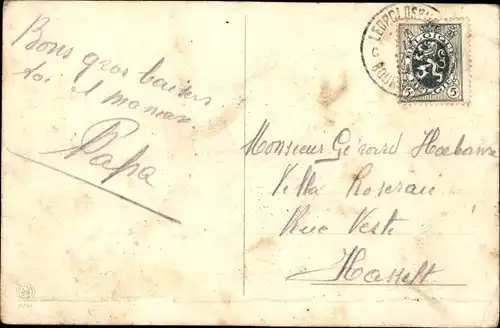 Bons gros baisers
toi et maman.
Papa
LEOPOLDSBURG
BELGIQUE
5 5
Monsieur Gérard
Villa Roserai
Rue Verte
Hasselt